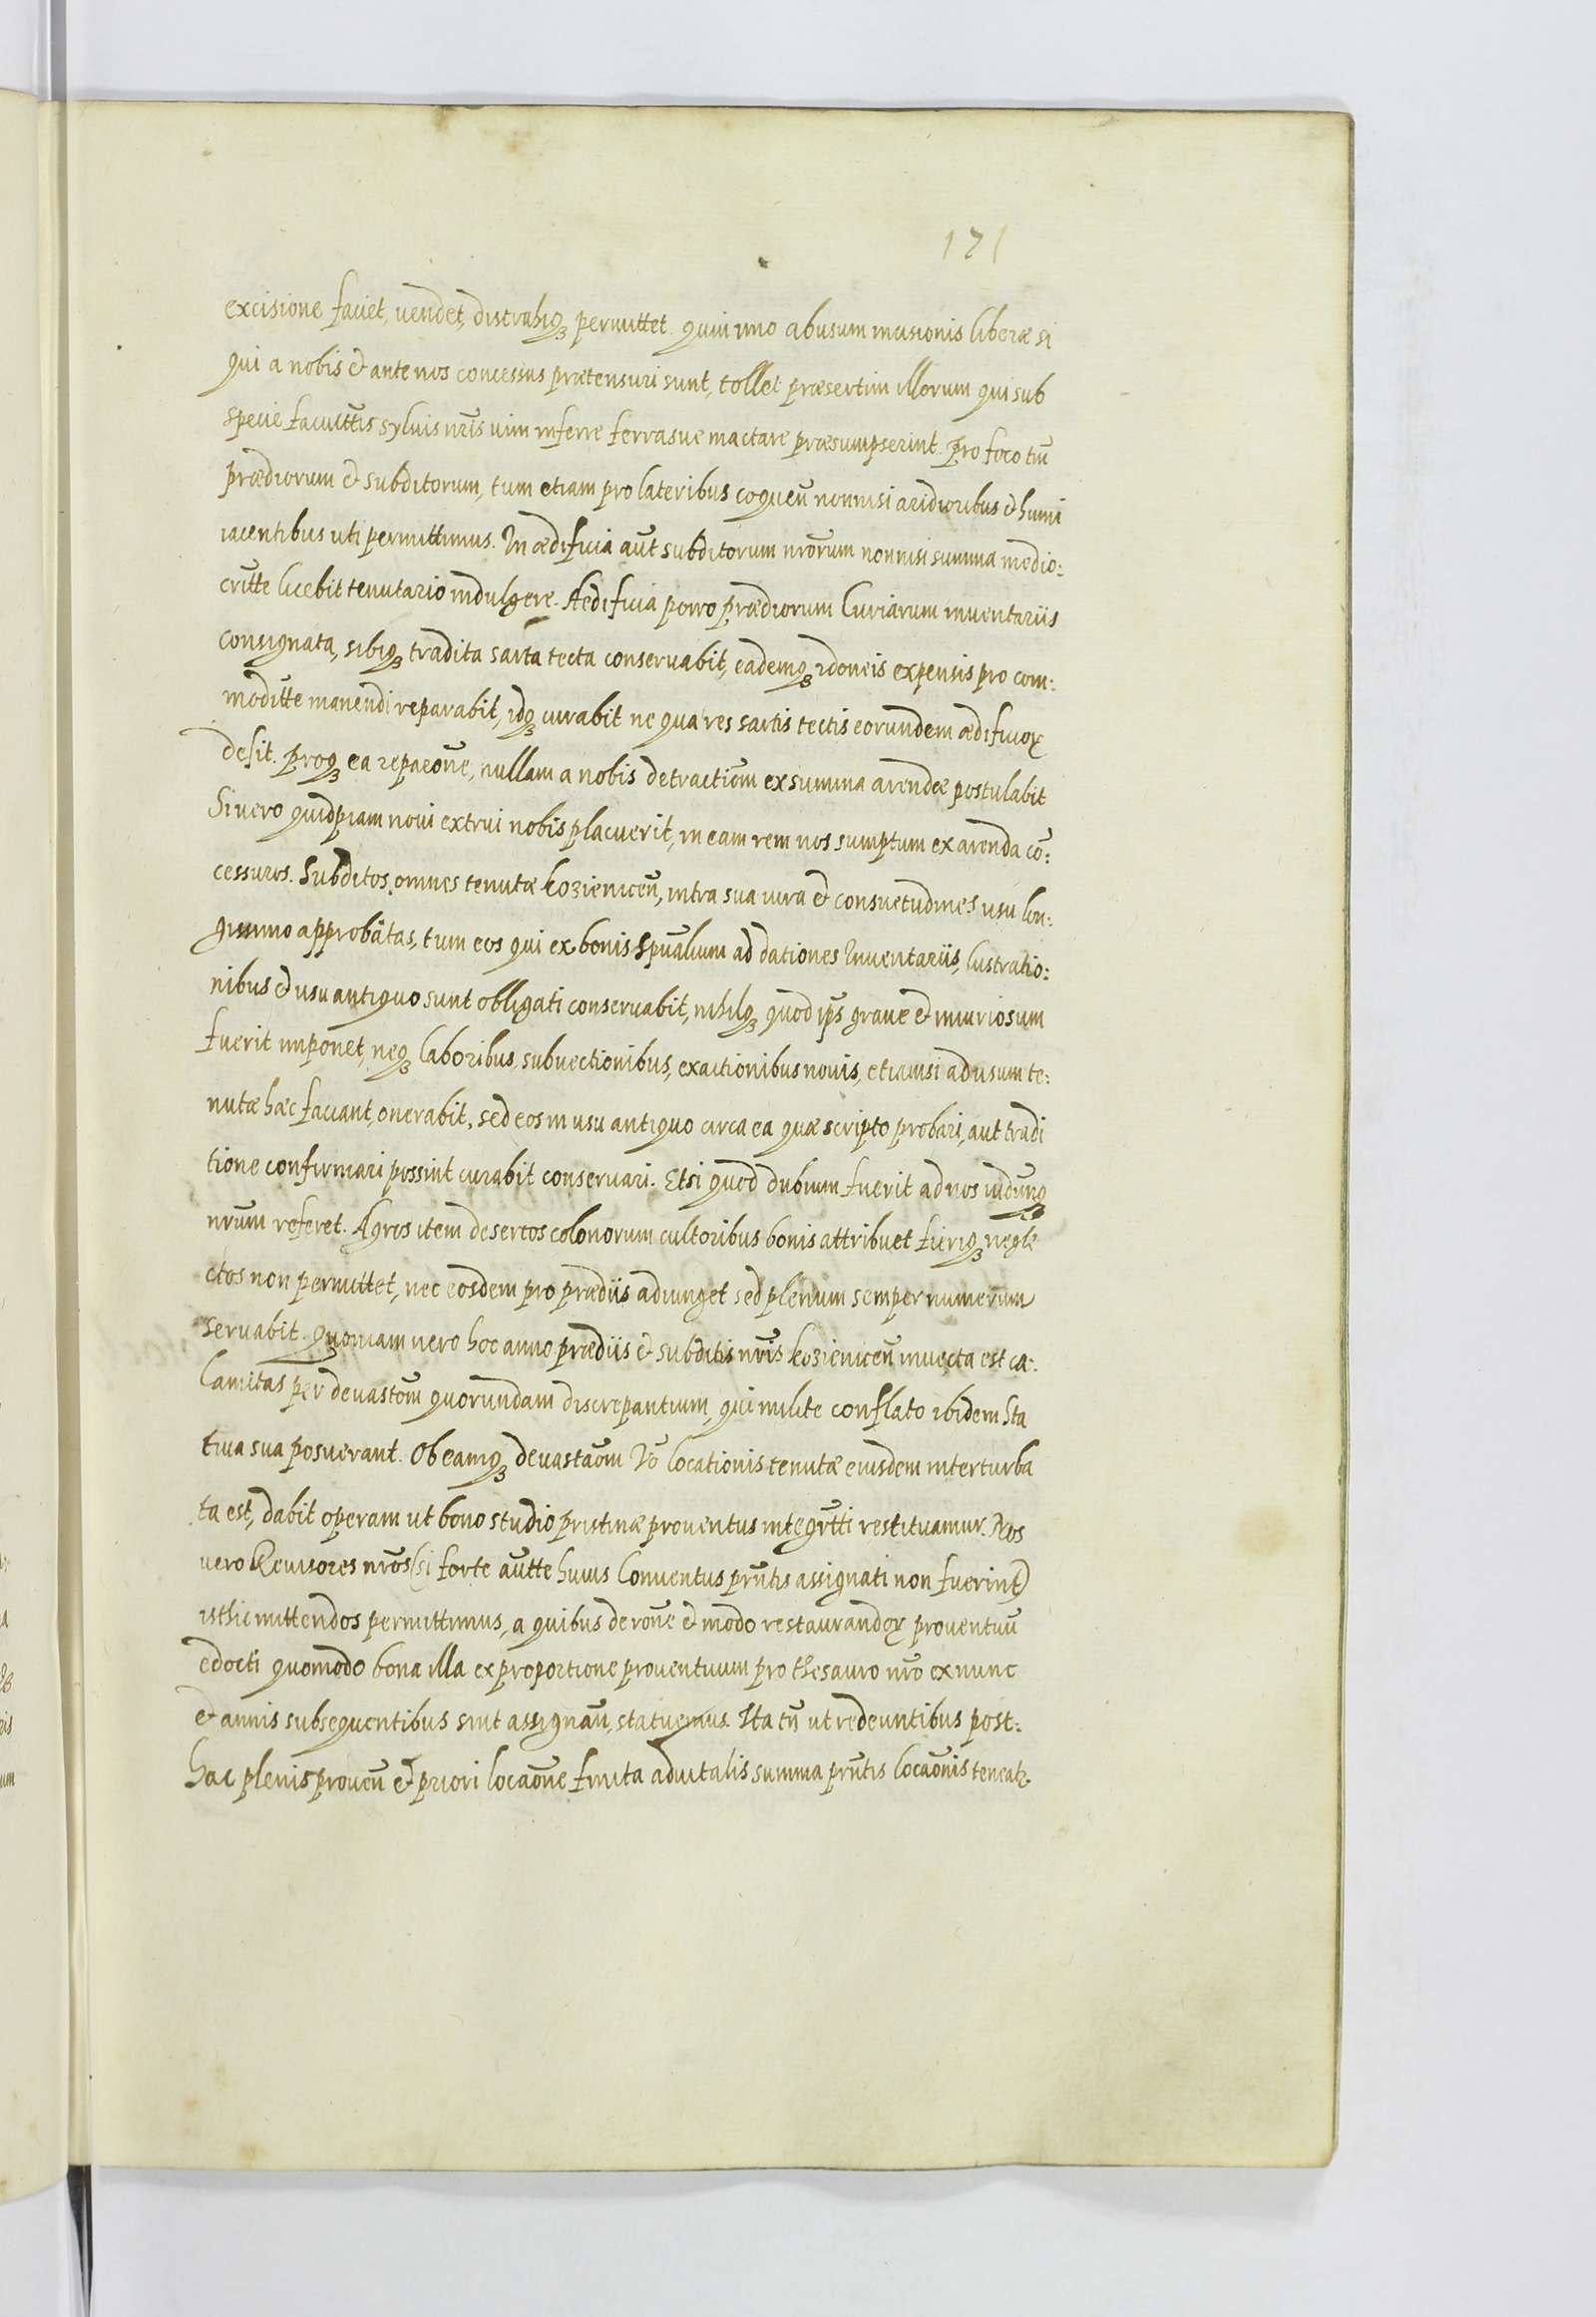 171
excisione faciet, vendet, distrahiq₃ permittet. quin imo abusum incisionis liberæ si
qui a nobis et ante nos concessus prætensuri sunt, tollet præsertim illorum qui sub
specie facultt̃is syluis nr̃is vim inferre ferrasve mactare præsumpserint. pro foco tũ
prædiorum et subditorum, tum etiam pro lateribus coqueñ nonnisi aridioribus et humi
iacentibus uti permittimus. In ædificia aũt subditorum nr̃orum nonnisi summa medio:
critt̃e licebit tenutario indulgere. Aedificia porro prædiorum Curiarum inventariis
consignata, sibiq₃ tradita sarta tecta conservabit, eademq₃ idoneis expensis pro com:
moditt̃e manendi reparabit, idq₃ curabit ne qua res sartis tectis eorundem ædificioꝝ
desit. proq₃ ea repaeõne, nullam a nobis detractiõm ex summa arendæ postulabit
Si vero quidpiam novi extrui nobis placuerit, in eam rem nos sumptum ex arenda cõ:
cessuros. Subditos omnes tenutæ koзieniceñ, intra sua iura et consuetudines usu lon:
gissimo approbatas, tum eos qui ex bonis Spũalium ad dationes Inventariis, lustratio:
nibus et usu antiquo sunt obligati conservabit, nihilq₃ quod ip̃s grave et iniuriosum
fuerit imponet, neq₃ laboribus, subvectionibus, exactionibus novis, etiamsi ad usum te:
nutæ hæc faciant, onerabit, sed eos in usu antiquo circa ea quæ scripto probari, aut tradi
tione confirmari possint curabit conservari. Etsi quod dubium fuerit ad nos iudiũq₃
nr̃um referet. Agros item desertos colonorum cultoribus bonis attribuet fieriq₃ negle
ctos non permittet, nec eosdem pro prædiis adiunget sed plenum semper numerum
servabit. Quoniam vero hoc anno prædiis et subditis nr̃is koзieniceñ invecta est ca:
lamitas per devastõm quorundam discrepantium, qui milite conflato ibidem sta
tiva sua posuerant. Ob eamq₃ devastaõm Rõ locationis tenutæ eiusdem interturba
ta est, dabit operam ut bono studio pristinæ proventus integritt̃i restituamur. Nos
vero Revisores nr̃os (si forte autt̃e huius Conventus pr̃ntis assignati non fuerint)
isthic mittendos permittimus, a quibus de rõne et modo restaurandoꝝ proventuũ
edocti quomodo bona illa ex proportione proventuum pro thesauro nr̃o ex nunc
et annis subsequentibus sint assignañ, statuemus. Ita tñ ut redeuntibus post:
hac plenis proveñ et priori locaõne finita ad vitalis summa pr̃ntis locaõnis teneatꝛ.